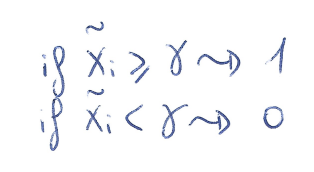 if x̃ᵢ ⩾ γ ⇝ 1
if x̃ᵢ < γ ⇝ 0